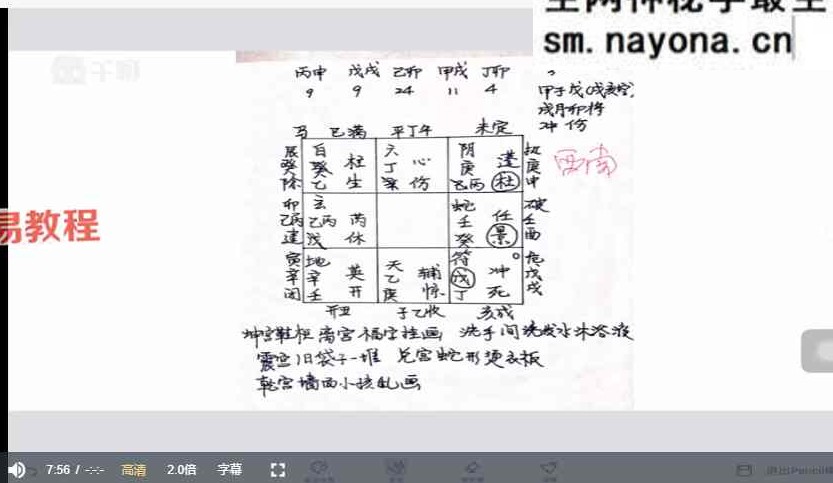 sm.nayona.cn
丙申 戊戌 乙卯 甲戌 丁卯
9 9 24 11 4
甲子戊(戌亥空)
戌月卯将
冲 伤
马 巳满 平丁午 未定
辰癸除
白 癸 柱 乙 生
六 丁 心 伤
阴 庚 蓬 乙丙 杜
执庚申
西南
卯乙丙建
玄 乙丙 芮 戊 休
蛇 壬 任 癸 景
破壬酉
寅辛闭
地 辛 英 壬 开
天 乙 辅 庚 惊
符 戊 冲 丁 死
危戊戌
开丑 子乙收 亥成
坤宫鞋柜 离宫福字挂画 洗手间洗发水沐浴液
震宫旧袋子一堆 兑宫蛇形烫衣板
乾宫墙面小孩乱画
易教程
7:56 / -:-
高清
2.0倍
字幕